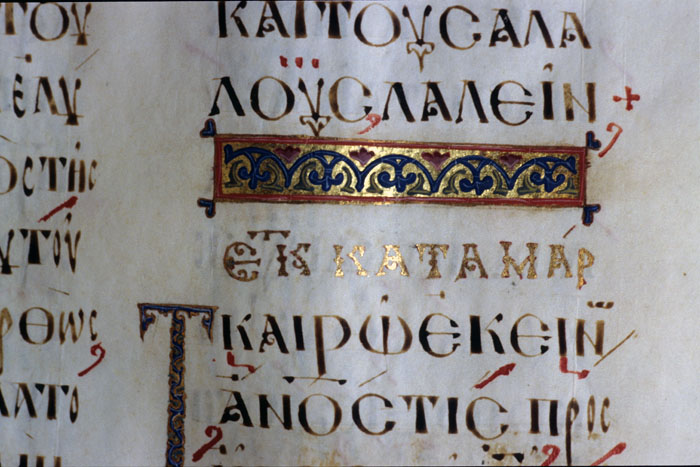 ΤΟΥ
ΕΛΥ
ΟϹΤΗϹ
ΥΤΟΥ
ΡΘΩϹ
ΛΑΤΟ
ΚΑΙ ΤΟΥϹ ΑΛΑ
ΛΟΥϹ ΛΑΛΕΙΝ +
ΕΚ Τ ΚΑΤΑ ΜΑΡ
Τ ΚΑΙΡΩ ΕΚΕΙΝ
ΑΝΟϹ ΤΙϹ ΠΡΟϹ